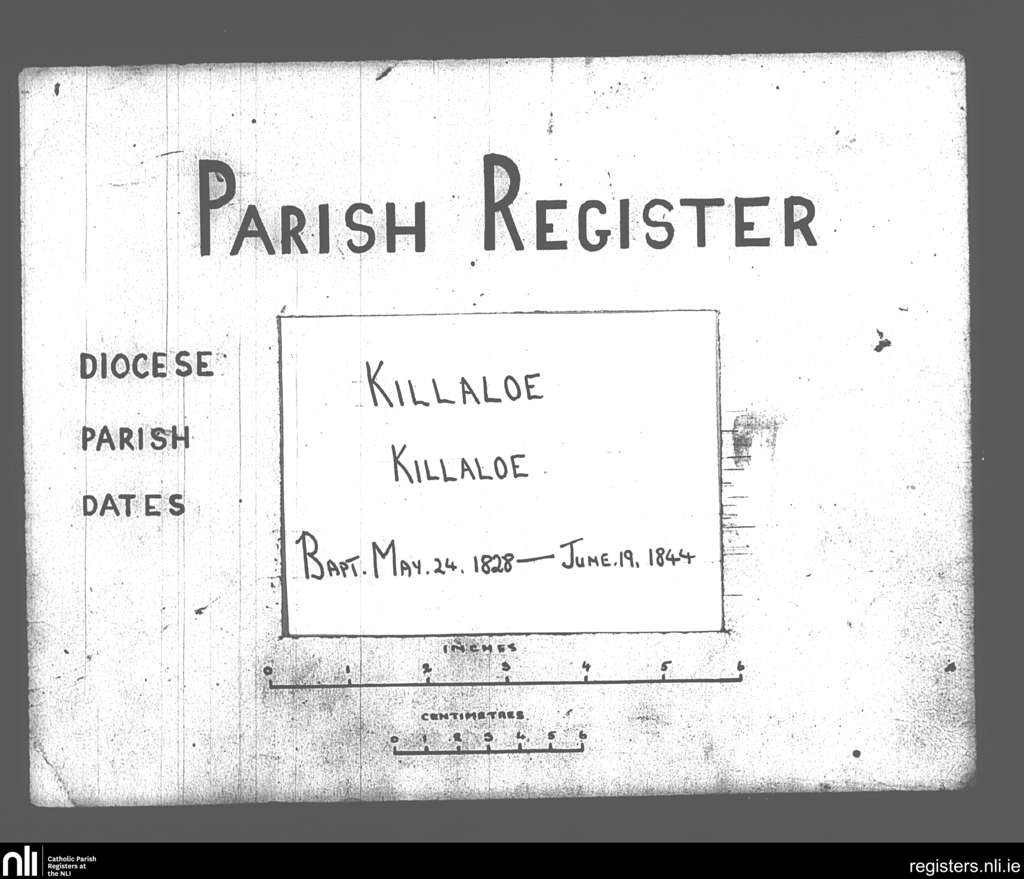 PARISH REGISTER
DIOCESE KILLALOE
PARISH KILLALOE
DATES BAPT. MAY. 24. 1828 — JUNE. 19. 1844
INCHES
0 1 2 3 4 5 6
CENTIMETRES
0 1 2 3 4 5 6
nli Catholic Parish
Registers at
the NLI
registers.nli.ie